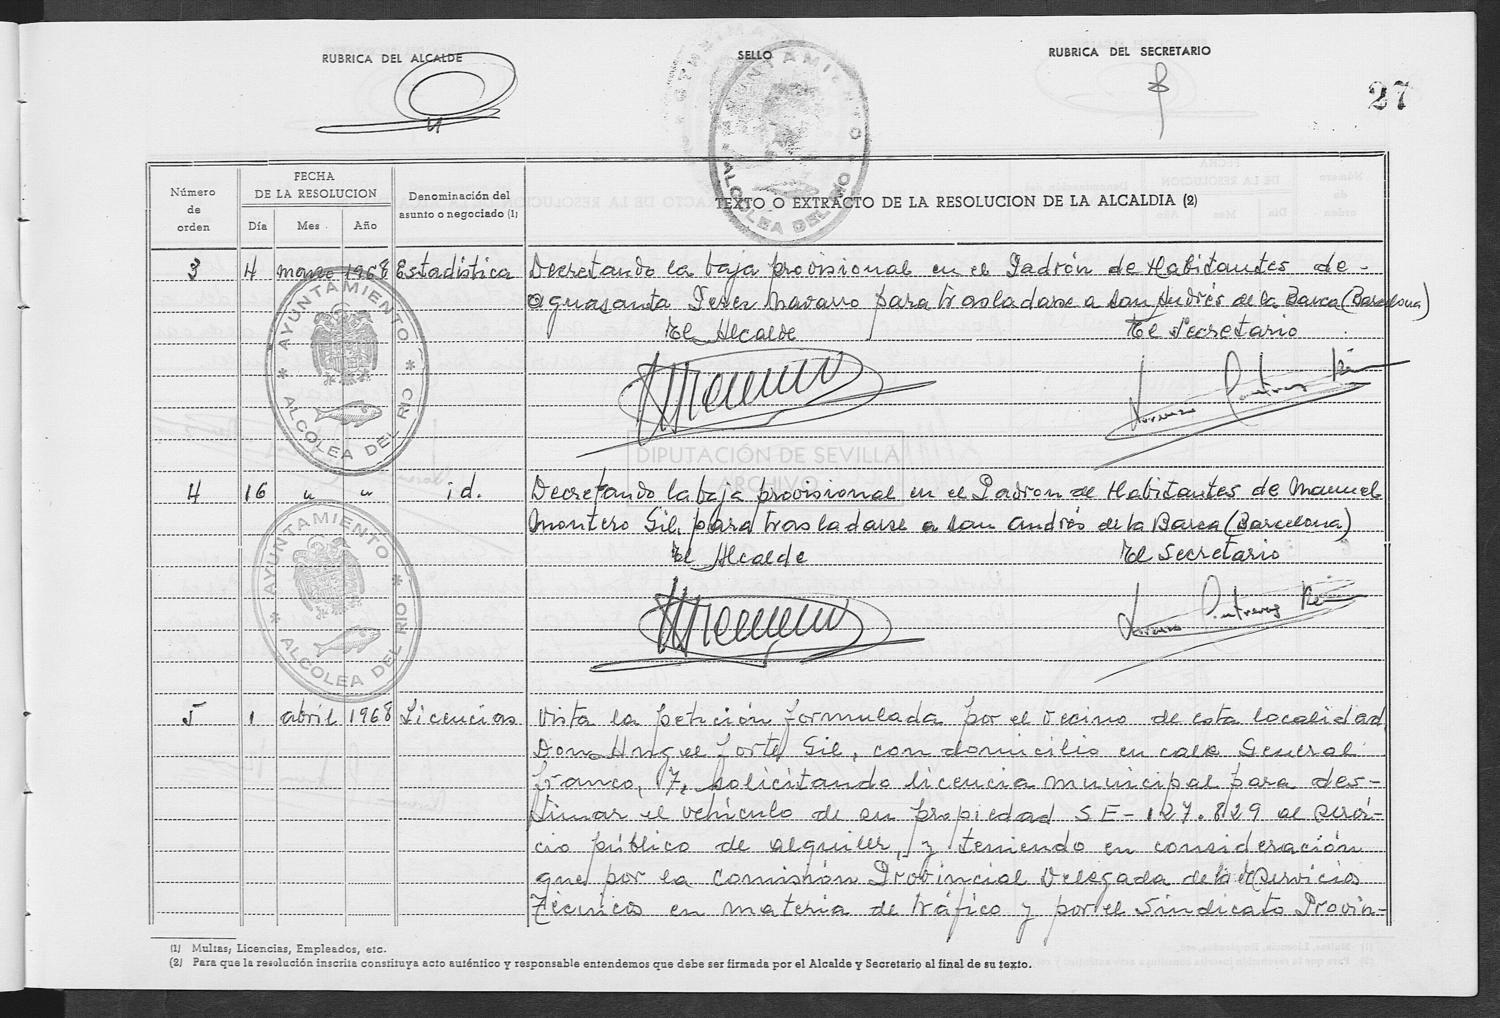 RUBRICA DEL ALCALDE
SELLO
RUBRICA DEL SECRETARIO
27
AYUNTAMIENTO
ALCOLEA DEL RIO
Número de orden
FECHA DE LA RESOLUCION
Día Mes Año
Denominación del asunto o negociado (1)
TEXTO O EXTRACTO DE LA RESOLUCION DE LA ALCALDIA (2)
3 4 marzo 1968 Estadística Decretando la baja provisional en el Padrón de Habitantes de -
Aguasanta Perez Navarro para trasladarse a San Andrés de la Barca (Barcelona)
El Alcalde El Secretario
AYUNTAMIENTO * ALCOLEA DEL RIO *
Lorenzo Contreras
DIPUTACIÓN DE SEVILLA
ARCHIVO
4 16 " " id. Decretando la baja provisional en el Padron de Habitantes de Manuel
Montero Gil, para trasladarse a San Andrés de la Barca (Barcelona)
El Alcalde El Secretario
AYUNTAMIENTO * ALCOLEA DEL RIO *
Lorenzo Contreras
5 1 abril 1968 Licencias Vista la petición formulada por el vecino de esta localidad
Don Angel Forte Gil, con domicilio en calle General
Franco, 7, solicitando licencia municipal para des-
tinar el vehículo de su propiedad SE-127.829 al servi-
cio público de alquiler, y teniendo en consideración
que por la Comisión Provincial Delegada de Servicios
Técnicos en materia de tráfico y por el Sindicato Provin-
(1) Multas, Licencias, Empleados, etc.
(2) Para que la resolución inscrita constituya acto auténtico y responsable entendemos que debe ser firmada por el Alcalde y Secretario al final de su texto.